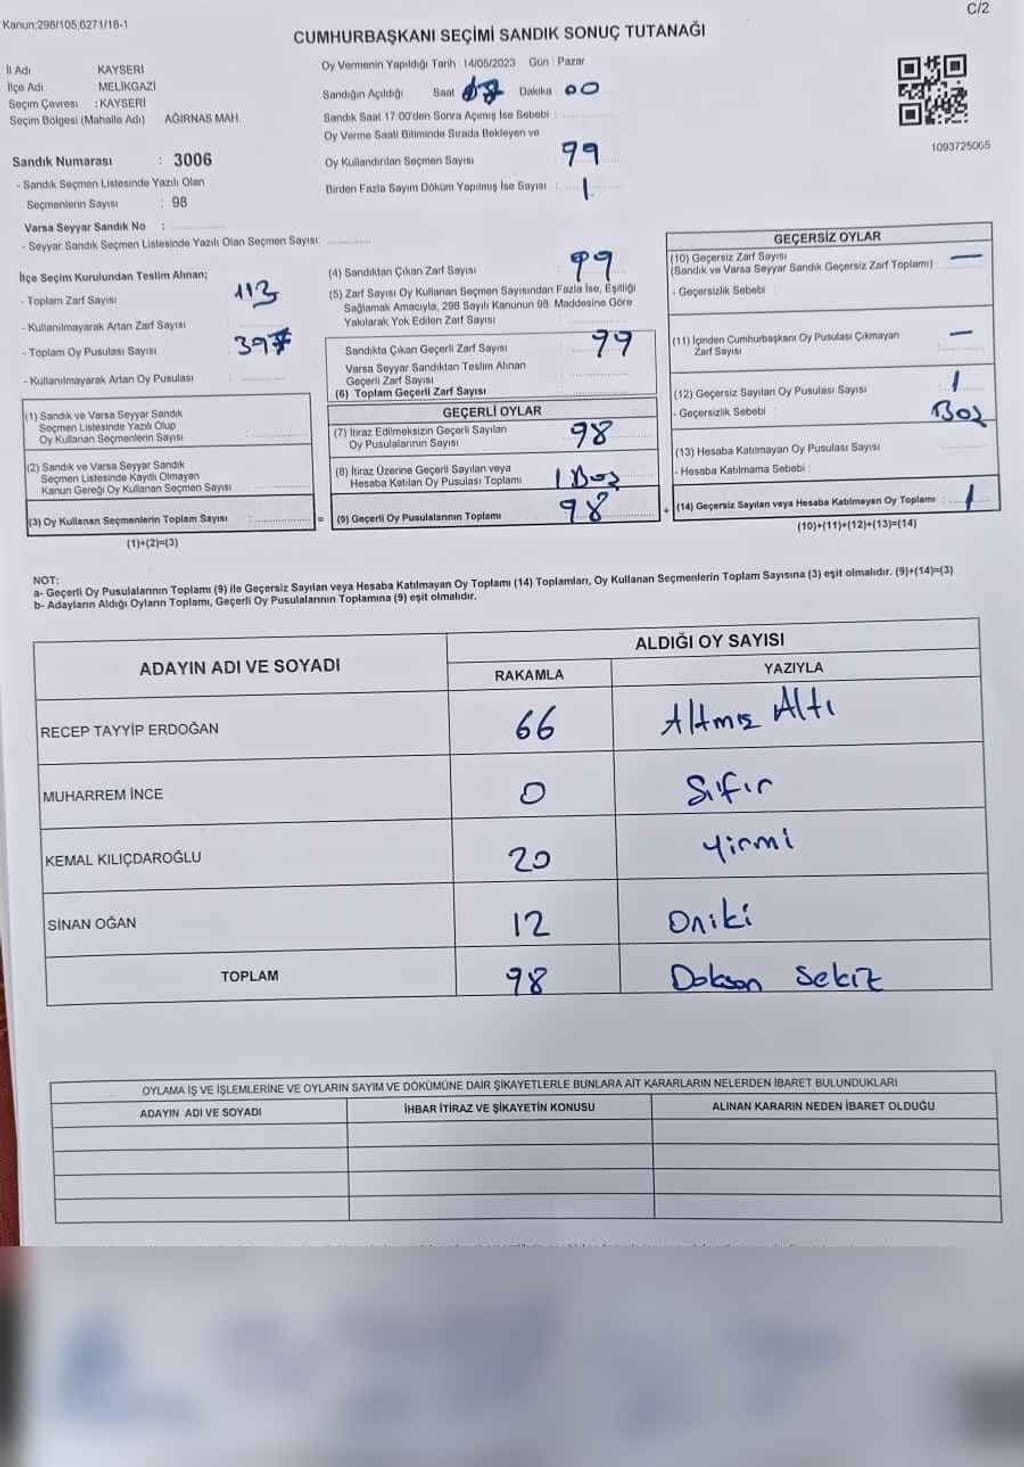 Kanun:298/105,6271/18-1
C/2
CUMHURBAŞKANI SEÇİMİ SANDIK SONUÇ TUTANAĞI
İl Adı : KAYSERİ
İlçe Adı : MELİKGAZİ
Seçim Çevresi : KAYSERİ
Seçim Bölgesi (Mahalle Adı) AĞIRNAS MAH.
Sandık Numarası : 3006
- Sandık Seçmen Listesinde Yazılı Olan
Seçmenlerin Sayısı : 98
Varsa Seyyar Sandık No :
- Seyyar Sandık Seçmen Listesinde Yazılı Olan Seçmen Sayısı:
Oy Vermenin Yapıldığı Tarih : 14/05/2023 Gün : Pazar
Sandığın Açıldığı Saat Dakika 00
Sandık Saat 17:00'den Sonra Açılmış İse Sebebi :
Oy Verme Saati Bitiminde Sırada Bekleyen ve
Oy Kullandırılan Seçmen Sayısı 99
Birden Fazla Sayım Döküm Yapılmış İse Sayısı : 1
1093725065
İlçe Seçim Kurulundan Teslim Alınan;
- Toplam Zarf Sayısı 113
- Kullanılmayarak Artan Zarf Sayısı
- Toplam Oy Pusulası Sayısı 397
- Kullanılmayarak Artan Oy Pusulası :
(1) Sandık ve Varsa Seyyar Sandık
Seçmen Listesinde Yazılı Olup
Oy Kullanan Seçmenlerin Sayısı
(2) Sandık ve Varsa Seyyar Sandık
Seçmen Listesinde Kayıtlı Olmayan
Kanun Gereği Oy Kullanan Seçmen Sayısı
(3) Oy Kullanan Seçmenlerin Toplam Sayısı : =
(1)+(2)=(3)
(4) Sandıktan Çıkan Zarf Sayısı 99
(5) Zarf Sayısı Oy Kullanan Seçmen Sayısından Fazla İse, Eşitliği
Sağlamak Amacıyla, 298 Sayılı Kanunun 98. Maddesine Göre
Yakılarak Yok Edilen Zarf Sayısı
Sandıkta Çıkan Geçerli Zarf Sayısı 99
Varsa Seyyar Sandıktan Teslim Alınan
Geçerli Zarf Sayısı
(6) Toplam Geçerli Zarf Sayısı
GEÇERLİ OYLAR
(7) İtiraz Edilmeksizin Geçerli Sayılan
Oy Pusulalarının Sayısı 98
(8) İtiraz Üzerine Geçerli Sayılan veya
Hesaba Katılan Oy Pusulası Toplamı 1 Boş
(9) Geçerli Oy Pusulalarının Toplamı 98 +
GEÇERSİZ OYLAR
(10) Geçersiz Zarf Sayısı —
(Sandık ve Varsa Seyyar Sandık Geçersiz Zarf Toplamı)
- Geçersizlik Sebebi :
(11) İçinden Cumhurbaşkanı Oy Pusulası Çıkmayan
Zarf Sayısı —
(12) Geçersiz Sayılan Oy Pusulası Sayısı 1
- Geçersizlik Sebebi : Boş
(13) Hesaba Katılmayan Oy Pusulası Sayısı
- Hesaba Katılmama Sebebi :
(14) Geçersiz Sayılan veya Hesaba Katılmayan Oy Toplamı : 1
(10)+(11)+(12)+(13)=(14)
NOT:
a- Geçerli Oy Pusulalarının Toplamı (9) ile Geçersiz Sayılan veya Hesaba Katılmayan Oy Toplamı (14) Toplamları, Oy Kullanan Seçmenlerin Toplam Sayısına (3) eşit olmalıdır. (9)+(14)=(3)
b- Adayların Aldığı Oyların Toplamı, Geçerli Oy Pusulalarının Toplamına (9) eşit olmalıdır.
ADAYIN ADI VE SOYADI ALDIĞI OY SAYISI
RAKAMLA YAZIYLA
RECEP TAYYİP ERDOĞAN 66 Altmış Altı
MUHARREM İNCE 0 Sıfır
KEMAL KILIÇDAROĞLU 20 Yirmi
SİNAN OĞAN 12 Oniki
TOPLAM 98 Doksan Sekiz
OYLAMA İŞ VE İŞLEMLERİNE VE OYLARIN SAYIM VE DÖKÜMÜNE DAİR ŞİKAYETLERLE BUNLARA AİT KARARLARIN NELERDEN İBARET BULUNDUKLARI
ADAYIN ADI VE SOYADI İHBAR İTİRAZ VE ŞİKAYETİN KONUSU ALINAN KARARIN NEDEN İBARET OLDUĞU